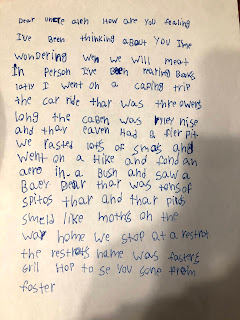 Dear uncle alen How are you feeling
I've Been thinking about you Ime
wondering wen we will meat
in Person I've Been reating Books
latly I went on a caping trip
the car ride that was thre owers
long the caben was nise
and thay eaven had a fier pit
we rasted lots of smors and
went on a Hike and fond an
aero in a Bush and saw a
Baey Dear thar was tons of
spitos thar and thar pitos
smeld like moths on the
way home we stop at a restrot
the restrots name was fosters
Gril Hop to se you sone from
foster